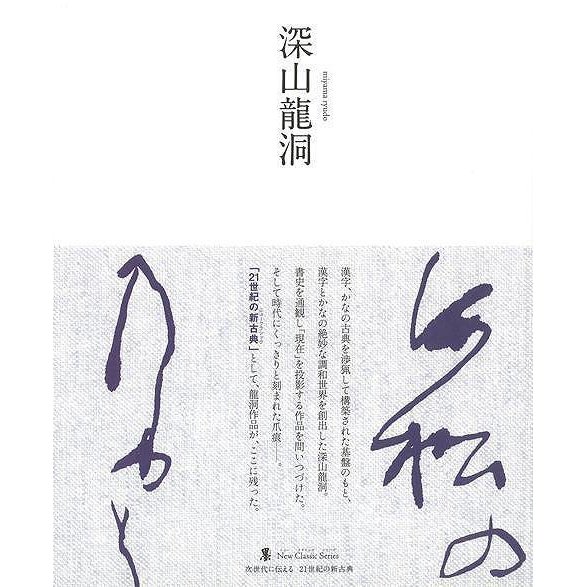 深山龍洞
miyama ryudo
漢字、かなの古典を渉猟して構築された基盤のもと、
漢字とかなの絶妙な調和世界を創出した深山龍洞。
書史を通観し「現在」を投影する作品を問いつづけた。
そして時代にくっきりと刻まれた爪痕――。
「21世紀の新古典」として、龍洞作品が、ここに残った。
墨 New Classic Series
次世代に伝える 21世紀の新古典